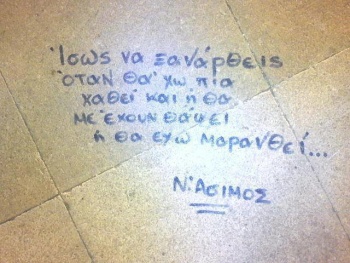 Ίσως να ξανάρθεις
όταν θα 'χω πια
χαθεί και ή θα
με έχουν θάψει
ή θα έχω μαρανθεί...
Ν. Άσιμος